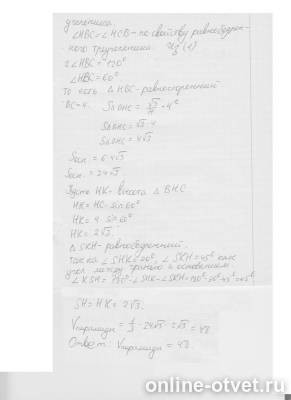 угольника.
∠HBC = ∠HCB - по свойству равнобедрен-
ного треугольника. Из (1)
2∠HBC = 120°
∠HBC = 60°
то есть △HBC - равносторонний
BC = 4. S△BHC = √3/4 · 4²
S△BHC = √3 · 4
S△BHC = 4√3
Sосн. = 6·4√3
Sосн. = 24√3
Пусть HK - высота △BHC
HK = HC · sin 60°
HK = 4 · sin 60°
HK = 2√3.
△SKH - равнобедренный.
так как ∠SHK = 90°, ∠SKH = 45° как
угол между гранью и основанием
∠KSH = 180° - ∠SHK - ∠SKH = 180° - 90° - 45° = 45°
SH = HK = 2√3.
Vпирамиды = 1/3 · 24√3 · 2√3 = 48
Ответ: Vпирамиды = 48.
online-otvet.ru